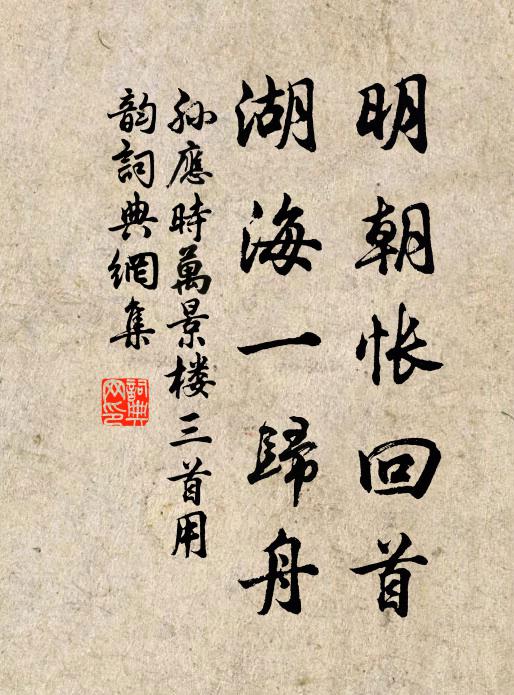 明朝怅回首
湖海一歸舟
孙應時萬景楼三首用
韵詞典網集
詞典
网印